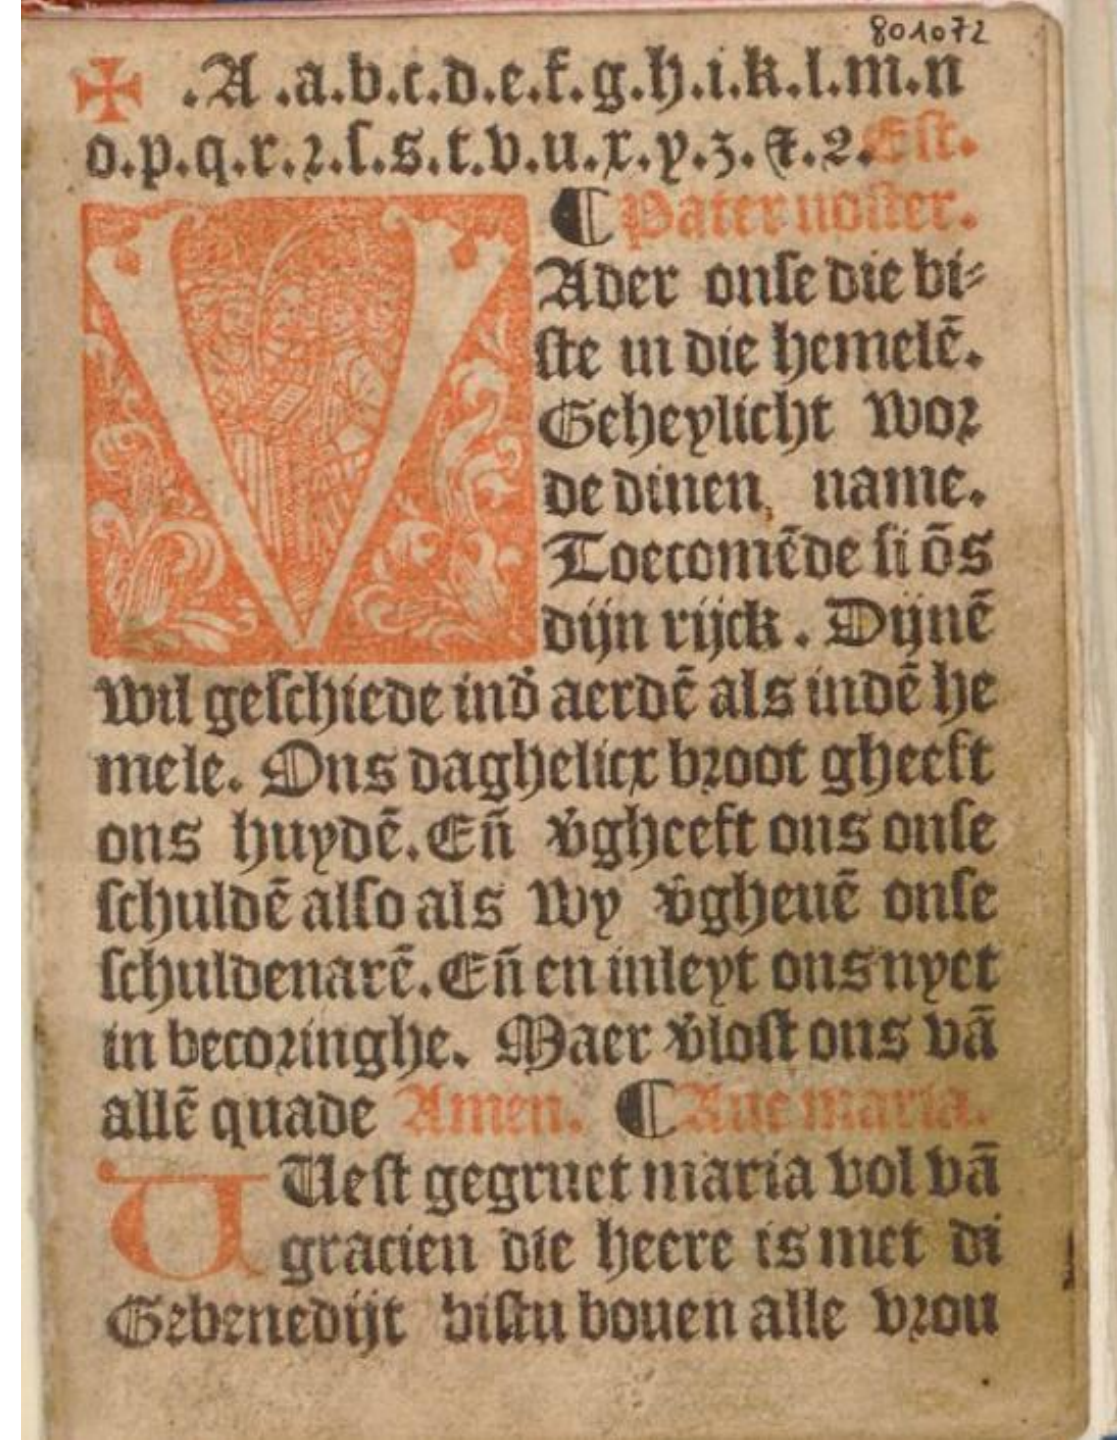 801072
✠ .A .a.b.c.d.e.f.g.h.i.k.l.m.n
o.p.q.r.ꝛ.ſ.s.t.v.u.x.y.ʒ.⁊.2.Eſt.
¶ Pater noſter.
VAder onſe die bi⸗
ſte in die hemelē.
Geheylicht woꝛ
de dinen name.
Toecomēde ſi ōs
dijn rijck. Dijnē
wil geſchiede ind͛ aerdē als indē he
mele. Ons daghelicx bꝛoot gheeft
ons huydē. En̄ v͛gheeft ons onſe
ſchuldē alſo als wy v͛gheuē onſe
ſchuldenarē. En̄ en inleyt ons nyet
in becoꝛinghe. Maer v͛loſt ons vā
allē quade Amen. ¶ Aue maria.
WEeſt gegruet maria vol vā
gracien die heere is met di
Gebenedijt biſtu bouen alle vꝛou